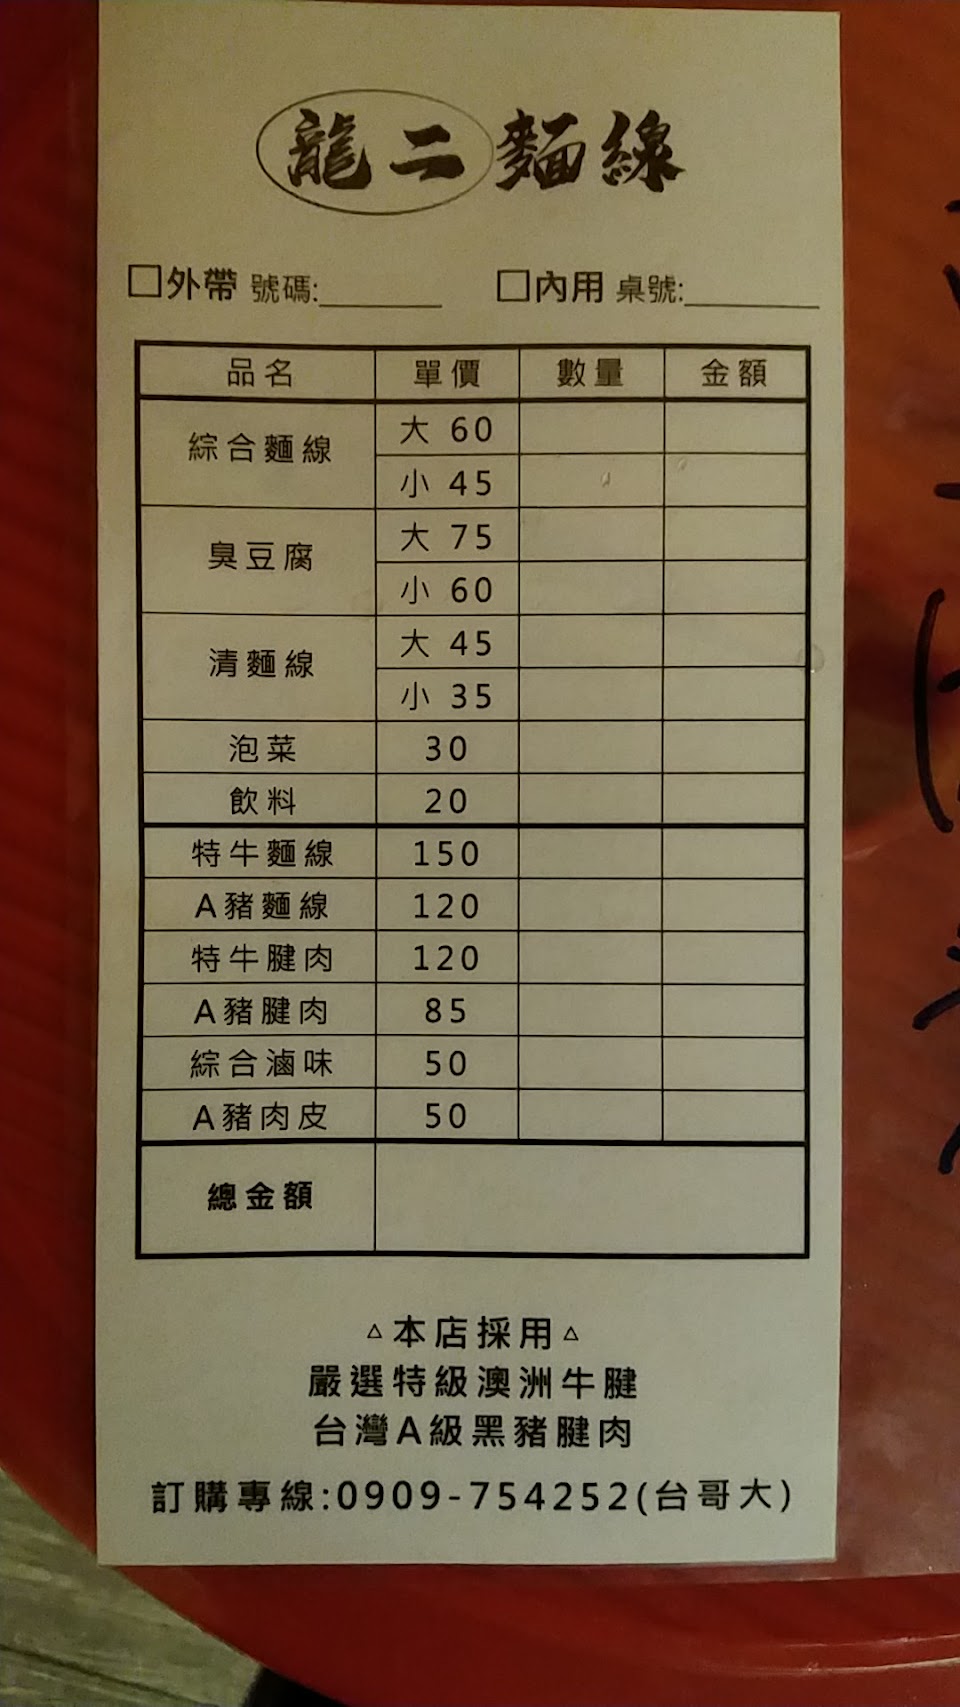 龍二麵線
□外帶 號碼:________ □內用 桌號:________
品名 單價 數量 金額
綜合麵線 大 60
小 45
臭豆腐 大 75
小 60
清麵線 大 45
小 35
泡菜 30
飲料 20
特牛麵線 150
A豬麵線 120
特牛腱肉 120
A豬腱肉 85
綜合滷味 50
A豬肉皮 50
總金額
△本店採用△
嚴選特級澳洲牛腱
台灣A級黑豬腱肉
訂購專線:0909-754252(台哥大)